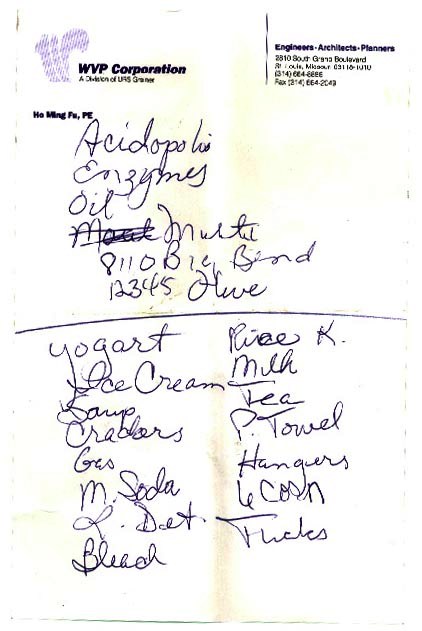 WVP Corporation
A Division of URS Greiner
Engineers·Architects·Planners
2810 South Grand Boulevard
St. Louis, Missouri 63118-1010
(314) 664-8886
Fax (314) 664-2049
Ho Ming Fu, PE
Acidopolis
Enzymes
Oil
Multi
8110 Big Bend
12345 Olive
yogart
Ice Cream
Soup
Crackers
Gas
M. Soda
L. Det
Bleach
Rice K.
Milk
Tea
P. Towel
Hangers
6 Corn